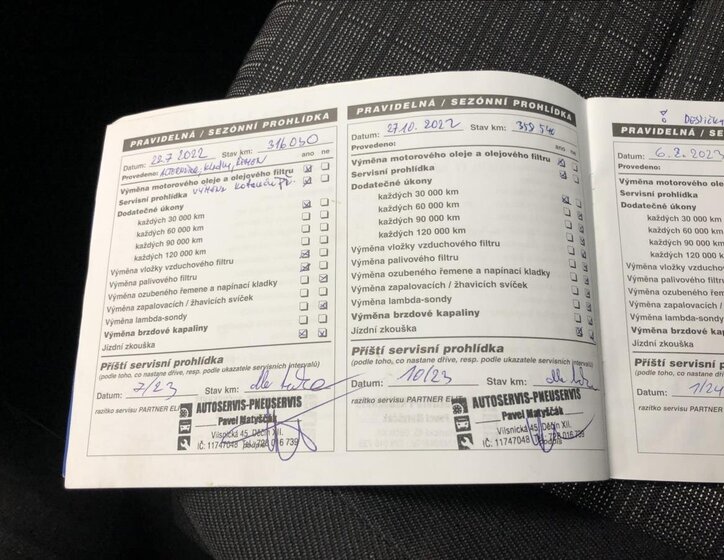 PRAVIDELNÁ / SEZÓNNÍ PROHLÍDKA
Datum: 28.7 2022 Stav km: 316 030
Provedeno: ALTERNÁTOR, kladky, ŘEMEN ano ne
Výměna motorového oleje a olejového filtru
Servisní prohlídka výměna
Dodatečné úkony
každých 30 000 km
každých 60 000 km
každých 90 000 km
každých 120 000 km
Výměna vložky vzduchového filtru
Výměna palivového filtru
Výměna ozubeného řemene a napínací kladky
Výměna zapalovacích / žhavicích svíček
Výměna lambda-sondy
Výměna brzdové kapaliny
Jízdní zkouška
Příští servisní prohlídka
(podle toho, co nastane dřív, resp. podle ukazatele servisních intervalů)
Datum: 7/23 Stav km: dle
razítko servisu PARTNER
AUTOSERVIS-PNEUSERVIS
Pavel Matyščák
Vilsnická 45, Děčín XII.
IČ: 11747048 tel. 728 016 739
PRAVIDELNÁ / SEZÓNNÍ PROHLÍDKA
Datum: 27.10. 2022 Stav km: 359 540
Provedeno: ano ne
Výměna motorového oleje a olejového filtru
Servisní prohlídka
Dodatečné úkony
každých 30 000 km
každých 60 000 km
každých 90 000 km
každých 120 000 km
Výměna vložky vzduchového filtru
Výměna palivového filtru
Výměna ozubeného řemene a napínací kladky
Výměna zapalovacích / žhavicích svíček
Výměna lambda-sondy
Výměna brzdové kapaliny
Jízdní zkouška
Příští servisní prohlídka
(podle toho, co nastane dřív, resp. podle ukazatele servisních intervalů)
Datum: 10/23 Stav km: dle
razítko servisu PARTNER
AUTOSERVIS-PNEUSERVIS
Pavel Matyščák
Vilsnická 45, Děčín XII.
IČ: 11747048 tel. 728 016 739
PRAVIDELNÁ / SEZÓNNÍ
Datum: 6.8.2023
Provedeno:
Výměna motorového oleje a
Servisní prohlídka
Dodatečné úkony
každých 30 000 km
každých 60 000 km
každých 90 000 km
každých 120 000 km
Výměna vložky vzduchového
Výměna palivového filtru
Výměna ozubeného řemene
Výměna zapalovacích / ž
Výměna lambda-sondy
Výměna brzdové kapalin
Jízdní zkouška
Příští servisní pro
(podle toho, co nastane dřív, resp.
Datum: 1/24
razítko servisu PARTNER